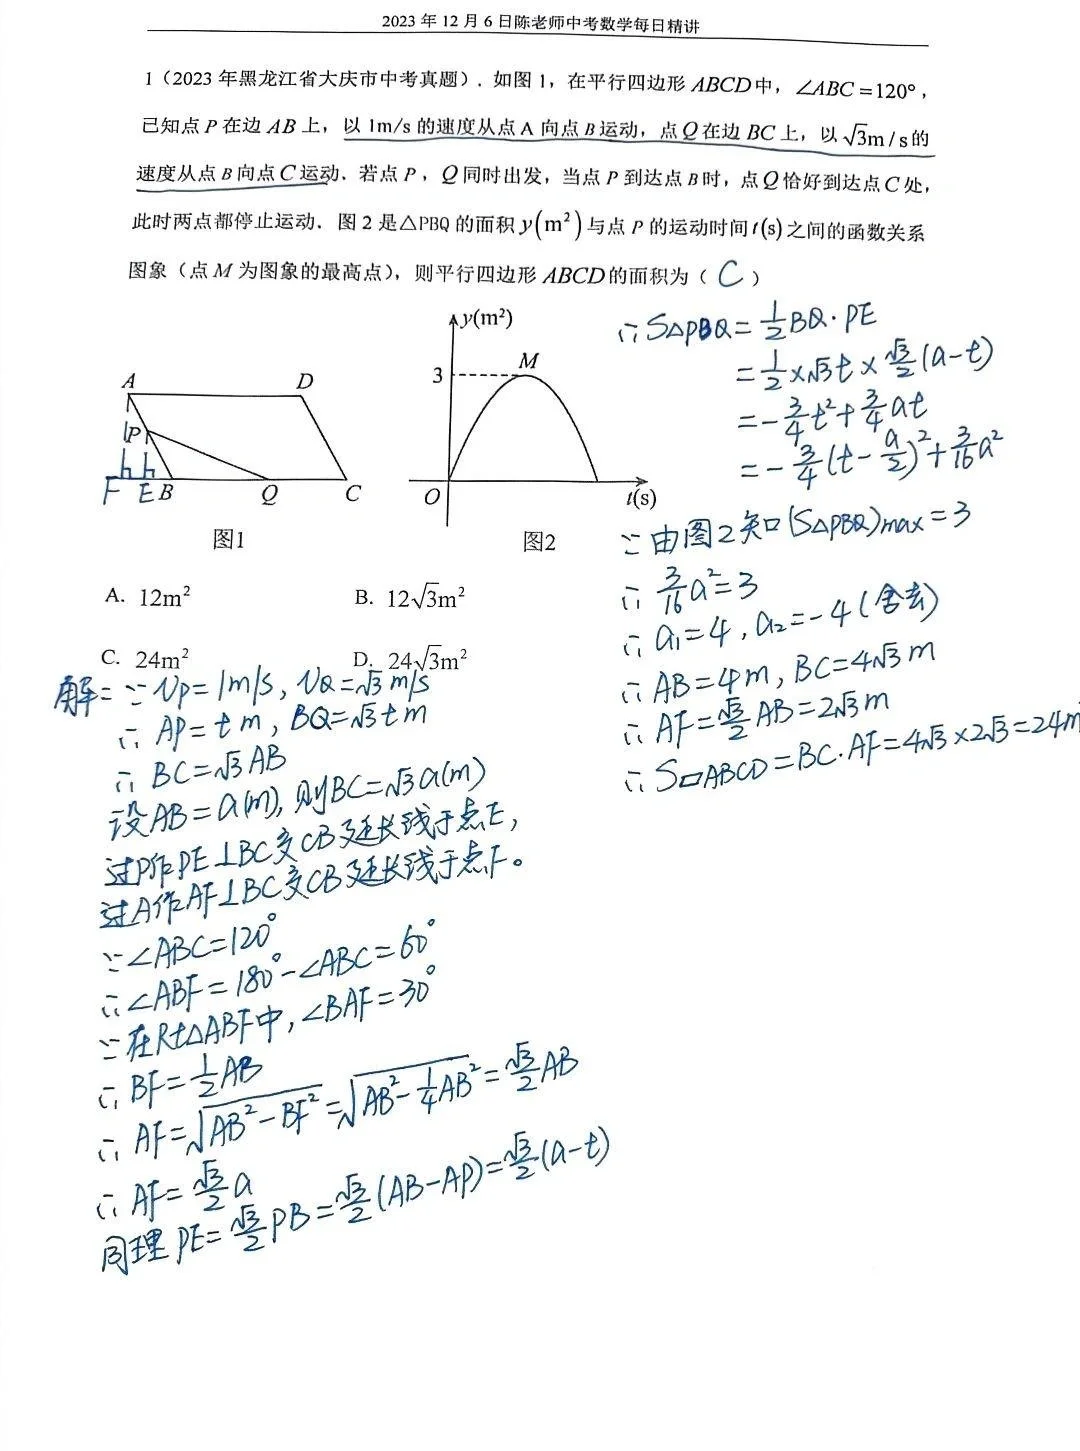 2023 年 12 月 6 日陈老师中考数学每日精讲
1（2023 年黑龙江省大庆市中考真题）. 如图 1，在平行四边形 ABCD 中，∠ABC=120°，
已知点 P 在边 AB 上，以 1m/s 的速度从点 A 向点 B 运动，点 Q 在边 BC 上，以 √3m/s 的
速度从点 B 向点 C 运动. 若点 P，Q 同时出发，当点 P 到达点 B 时，点 Q 恰好到达点 C 处，
此时两点都停止运动. 图 2 是△PBQ 的面积 y(m²) 与点 P 的运动时间 t(s) 之间的函数关系
图象（点 M 为图象的最高点），则平行四边形 ABCD 的面积为（ C ）
A D
P
F E B Q C
图1
y(m²)
3 M
O t(s)
图2
A. 12m²
B. 12√3m²
C. 24m²
D. 24√3m²
解：∵ Vp=1m/s, VQ=√3 m/s
∴ AP=t m, BQ=√3 t m
∴ BC=√3 AB
设AB=a(m), 则BC=√3 a(m)
过P作PE⊥BC交CB延长线于点E,
过A作AF⊥BC交CB延长线于点F。
∵ ∠ABC=120°
∴ ∠ABF=180°-∠ABC=60°
∵ 在Rt△ABF中, ∠BAF=30°
∴ BF=1/2 AB
∴ AF=√(AB²-BF²)=√(AB²-1/4 AB²)=√3/2 AB
∴ AF=√3/2 a
同理 PE=√3/2 PB=√3/2 (AB-AP)=√3/2 (a-t)
∴ S△PBQ=1/2 BQ·PE
=1/2×√3 t×√3/2 (a-t)
=-3/4 t²+3/4 at
=-3/4 (t-a/2)²+3/16 a²
∵ 由图2知(S△PBQ)max=3
∴ 3/16 a²=3
∴ a₁=4, a₂=-4 (舍去)
∴ AB=4m, BC=4√3 m
∴ AF=√3/2 AB=2√3 m
∴ S▱ABCD=BC·AF=4√3×2√3=24m